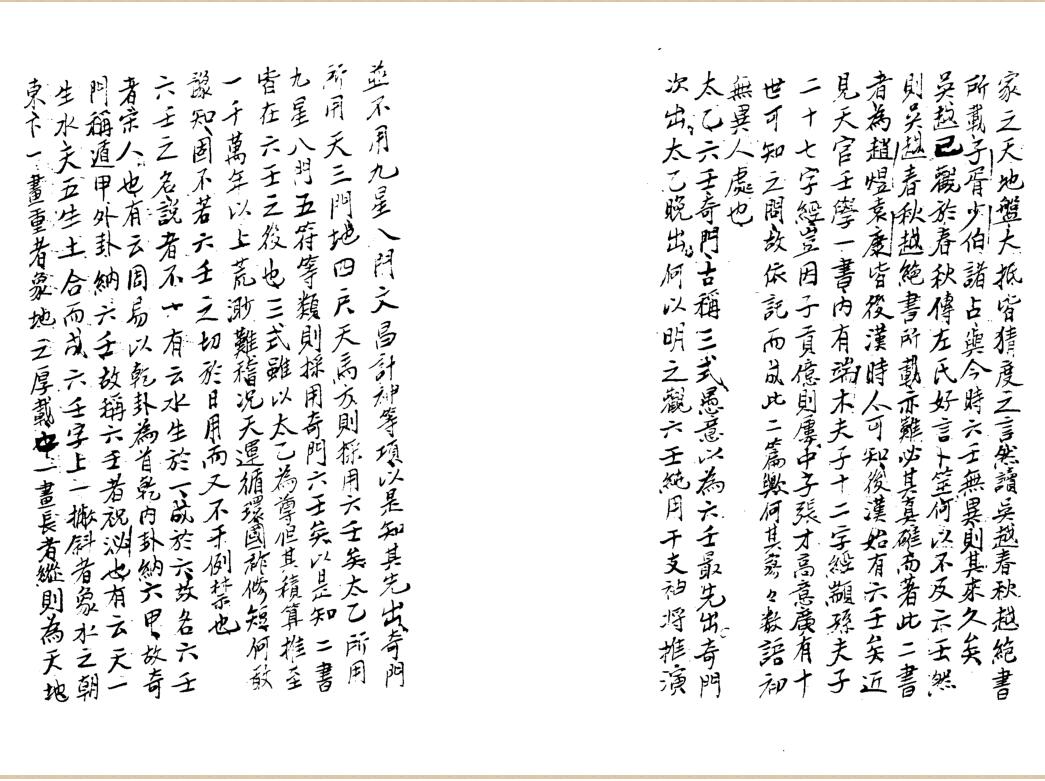 家之天地盤大抵皆猜度之言然讀吳越春秋越絕書
所載子胥少伯諸占與今時六壬無異則其來久矣
吳越已觀於春秋傳左氏好言卜筮何以不及六壬然
則吳越春秋越絕書所載亦難必其真確而著此二書
者為趙煜袁康皆後漢時人可知後漢始有六壬矣近
見天官壬學一書內有端木夫子十二字經顓孫夫子
二十七字經豈因子貢億則屢中子張才高意廣有十
世可知之問故依託而成此二篇歟何其寥々數語初
無異人處也
太乙六壬奇門古稱三式愚意以為六壬最先出奇門
次出太乙晚出何以明之觀六壬純用干支神將推演
並不用九星八門文昌計神等項以是知其先出奇門
所用天三門地四戶天馬方則採用六壬矣太乙所用
九星八門五符等類則採用奇門六壬矣以是知二書
皆在六壬之後也三式雖以太乙為尊但其積算推至
一千萬年以上荒渺難稽况天運循環國祚修短何敢
談知固不若六壬之切於日用而又不干例禁也
六壬之名說者不一有云水生於一成於六故名六壬
者宋人也有云周易以乾卦為首乾內卦納六甲故奇
門稱遁甲外卦納六壬故稱六壬者祝泌也有云天一
生水天五生土合而成六壬字上一撇斜者象水之朝
東下一畫重者象地之厚載中一畫長者縱則為天地